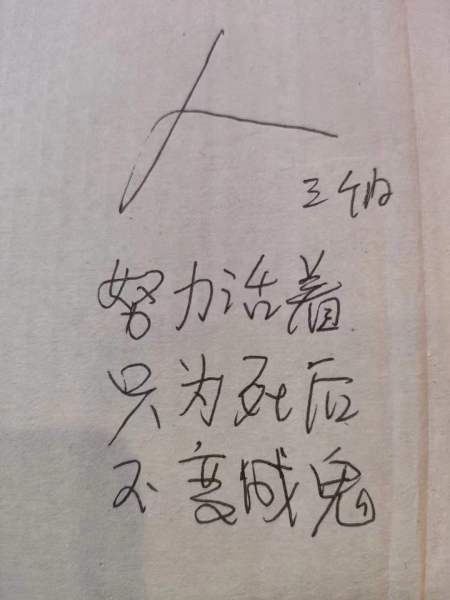 人
努力活着
只为死后
不变成鬼